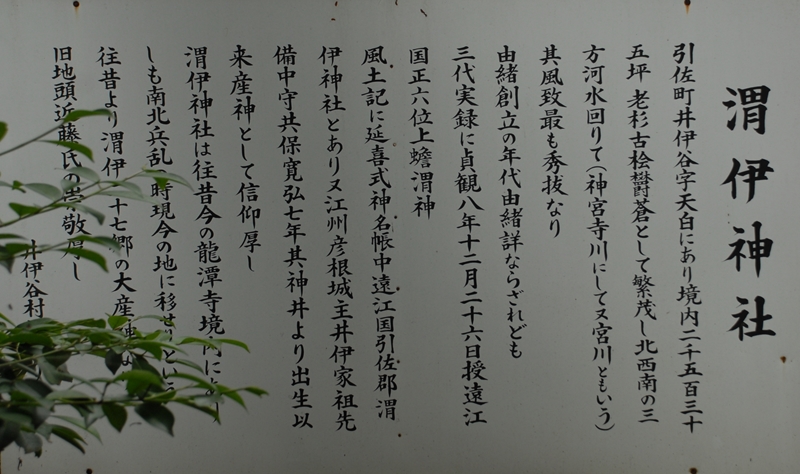 渭伊神社
引佐町井伊谷字天白にあり境内二千五百三十
五坪 老杉古桧欝蒼として繁茂し北西南の三
方河水回りて(神宮寺川にして又宮川ともいう)
其風致最も秀抜なり
由緒創立の年代由緒詳ならざれども
三代実録に貞観八年十二月二十六日授遠江
国正六位上蟾渭神
風土記に延喜式神名帳中遠江国引佐郡渭
伊神社とあり又江州彦根城主井伊家祖先
備中守共保寛弘七年其神井より出生以
来産神として信仰厚し
渭伊神社は往昔今の龍潭寺境内にあ
しも南北兵乱の時現今の地に移せりという
往昔より渭伊 十七郷の大産神な
旧地頭近藤氏の崇敬厚し
井伊谷村